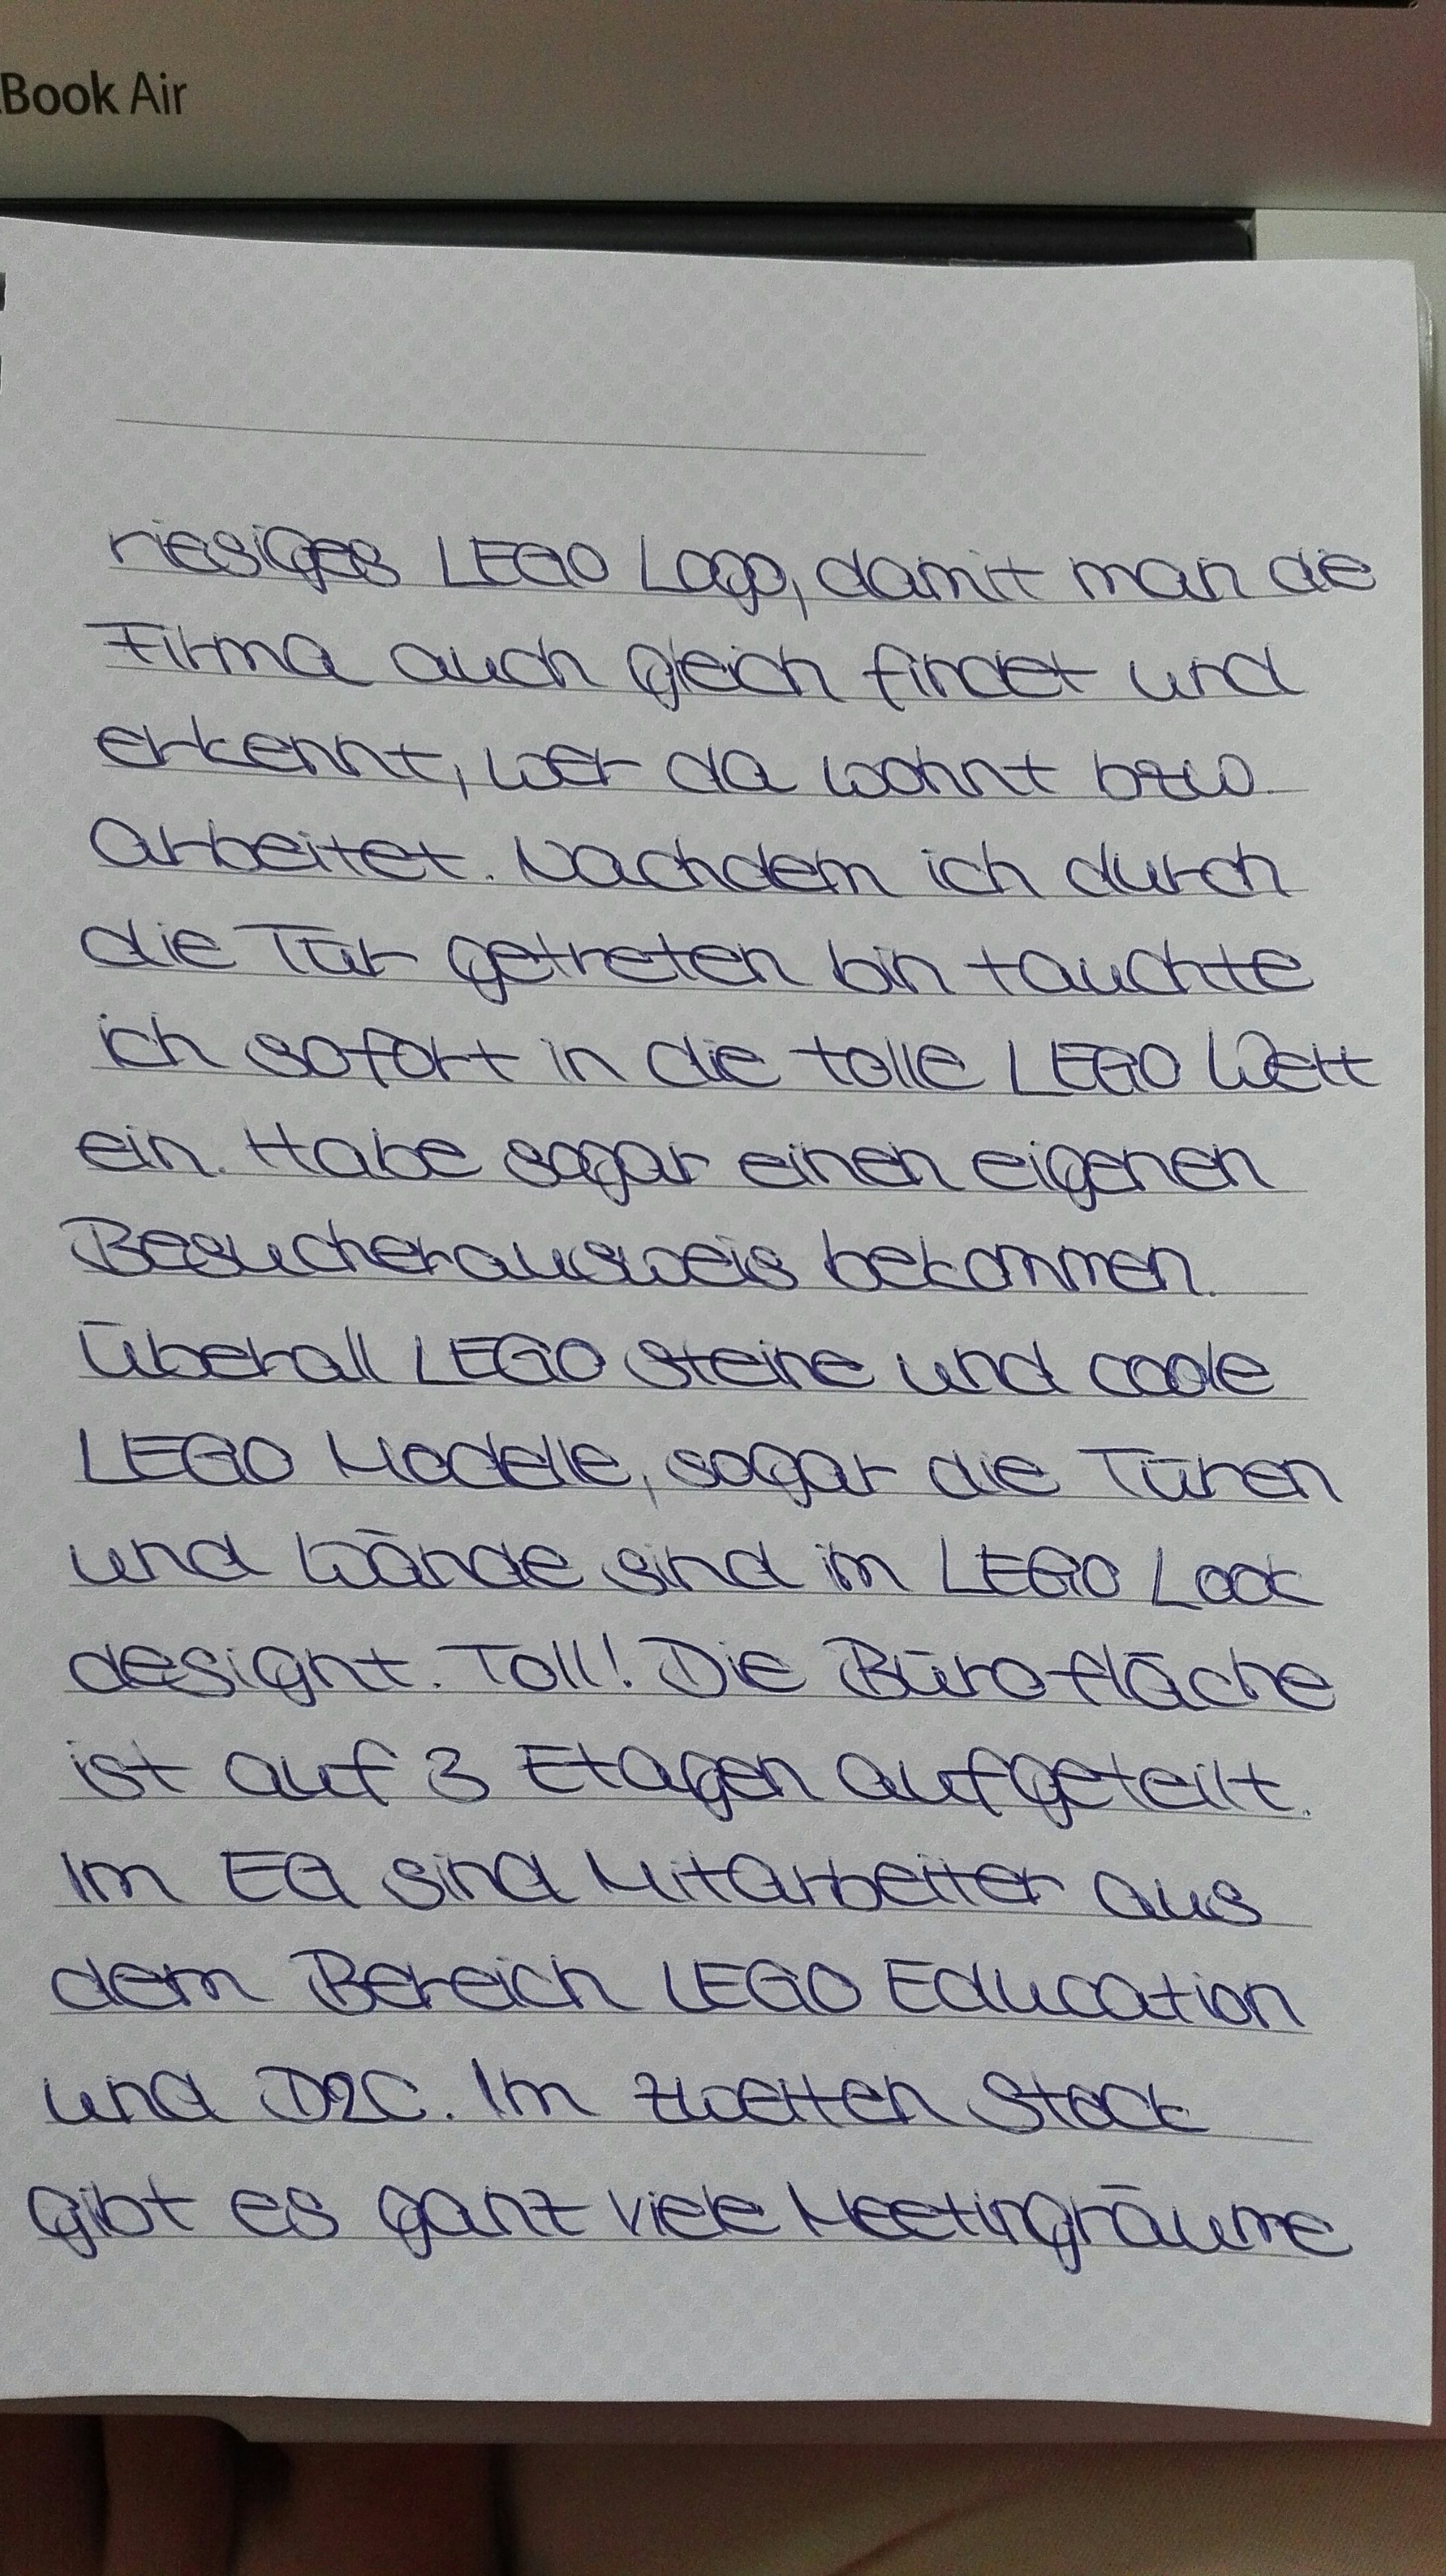 Book Air
riesiges LEGO Logo, damit man die
Firma auch gleich findet und
erkennt, wer da wohnt bzw.
arbeitet. Nachdem ich durch
die Tür getreten bin tauchte
ich sofort in die tolle LEGO Welt
ein. Habe sogar einen eigenen
Besucherausweis bekommen.
Überall LEGO Steine und coole
LEGO Modelle, sogar die Türen
und Wände sind im LEGO Look
designt. Toll! Die Bürofläche
ist auf 3 Etagen aufgeteilt.
Im EG sind Mitarbeiter aus
dem Bereich LEGO Education
und D2C. Im zweiten Stock
gibt es ganz viele Meetingräume